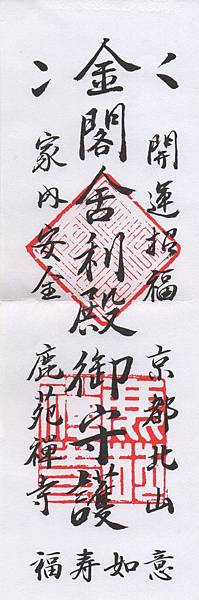 金閣舎利殿御守護
開運招福
京都北山
家内安全
鹿苑禅寺
如意
福寿